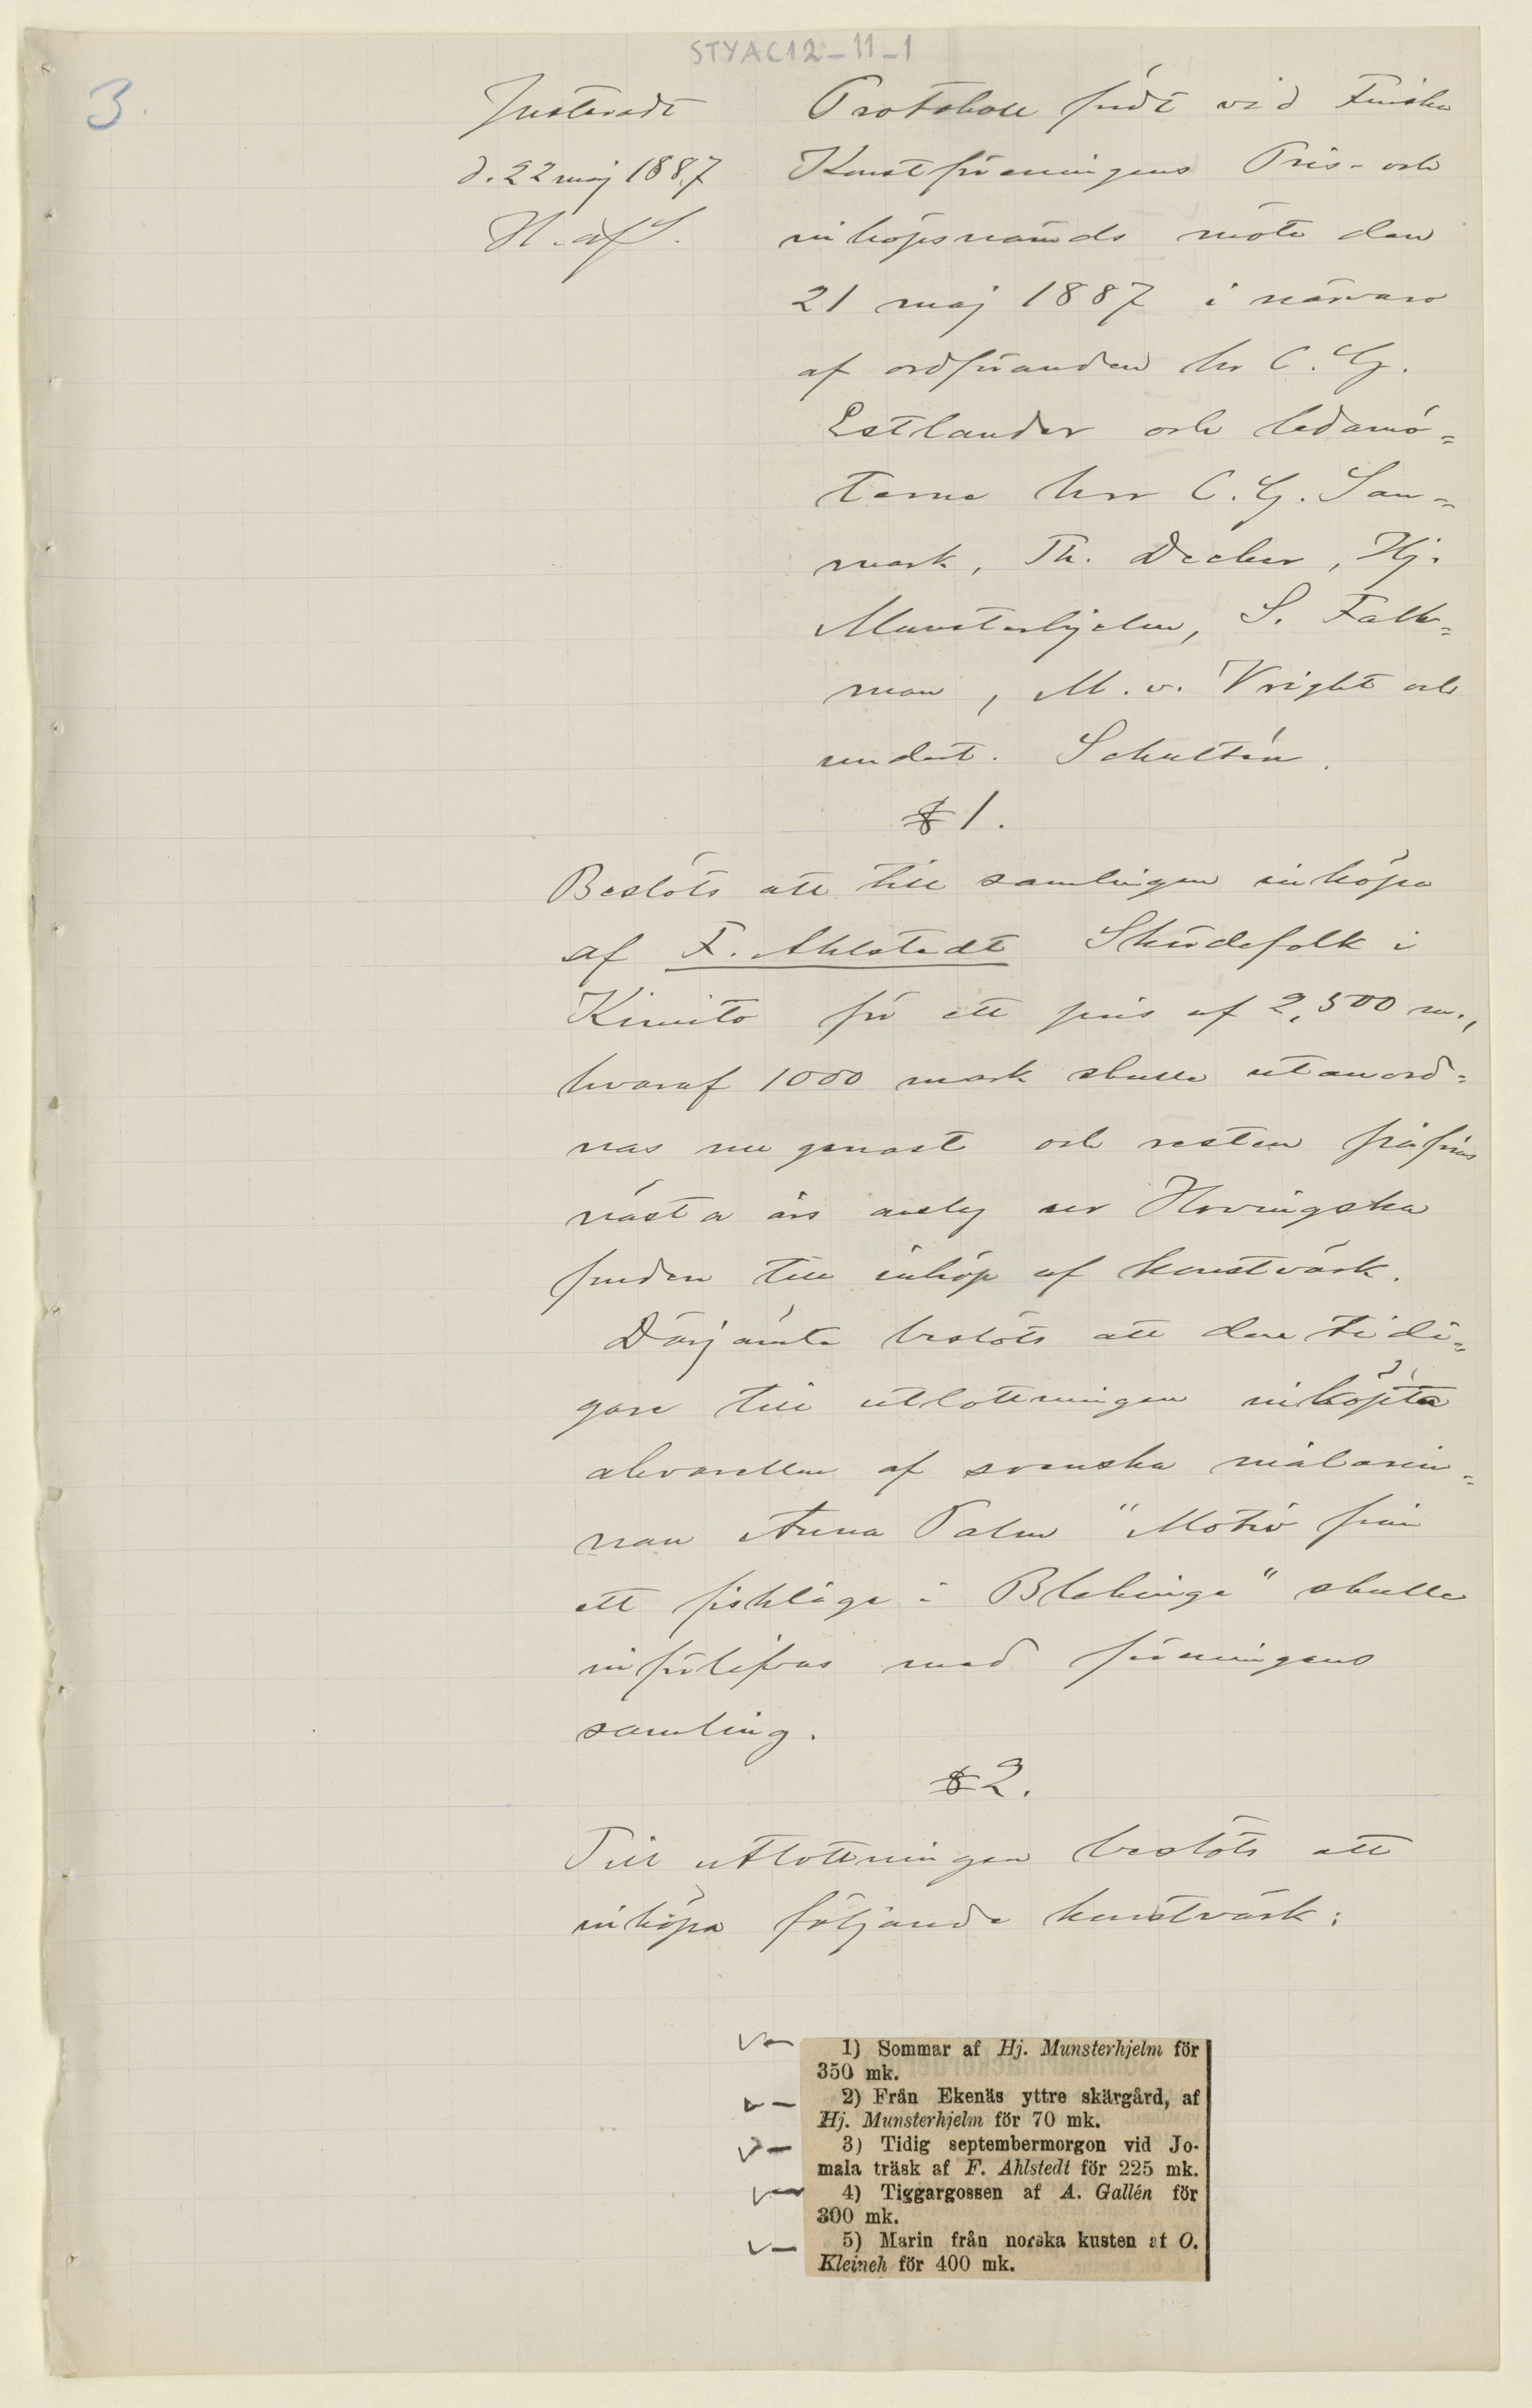 STYAC12-11-1
3.
Justeradt
d. 22 maj 1887
H. af S.
Protokoll fördt vid Finska
Konstföreningens Pris- och
inköpsnämds möte den
21 maj 1887 i närvaro
af ordföranden hr C. G.
Estlander och ledamö=
terne hrr C. G. San=
mark, Th. Decker, Hj.
Munsterhjelm, S. Falk=
man, M. v. Vright och
undert. Schultén.
§ 1.
Beslöts att till samlingen inköpa
af F. Ahlstedt Skördefolk i
Kimito för ett pris af 2,500 m.,
hvaraf 1000 mark skulle utanord=
nas nu genast och resten från
nästa års anslag ur Hovingska
fonden till inköp af konstvärk.
Därjämte beslöts att den tidi=
gare till utlottningen inköpta
akvarellen af svenska målarin=
nan Anna Palm "Motiv från
ett fiskläge i Blekinge" skulle
införlifvas med föreningens
samling.
§ 2.
Till utlottningen beslöts att
inköpa följande konstvärk:
1) Sommar af Hj. Munsterhjelm för
350 mk.
2) Från Ekenäs yttre skärgård, af
Hj. Munsterhjelm för 70 mk.
3) Tidig septembermorgon vid Jo-
mala träsk af F. Ahlstedt för 225 mk.
4) Tiggargossen af A. Gallén för
300 mk.
5) Marin från norska kusten af O.
Kleineh för 400 mk.